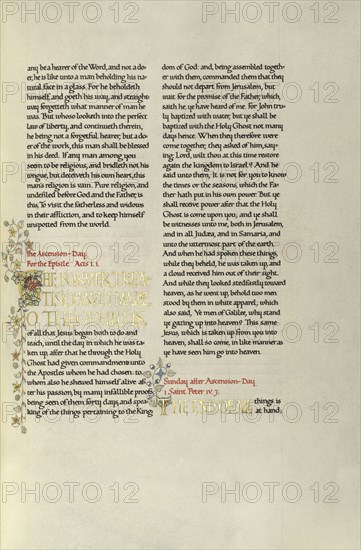 any be a hearer of the Word, and not a do-
er, he is like unto a man beholding his na-
tural face in a glass. For he beholdeth
himself, and goeth his way, and straight-
way forgetteth what manner of man he
was. But whoso looketh into the perfect
law of liberty, and continueth therein,
he being not a forgetful hearer, but a do-
er of the work, this man shall be blessed
in his deed. If any man among you
seem to be religious, and bridleth not his
tongue, but deceiveth his own heart, this
man's religion is vain. Pure religion, and
undefiled before God and the Father, is
this, To visit the fatherless and widows
in their affliction, and to keep himself
unspotted from the world.
The Ascension-Day.
For the Epistle. Acts i. 1.
THE FORMER TREA
TISE HAVE I MADE,
O THEOPHILUS,
of all that Jesus began both to do and
teach, until the day in which he was ta-
ken up, after that he through the Holy
Ghost had given commandments unto
the Apostles whom he had chosen: to
whom also he shewed himself alive af-
ter his passion, by many infallible proofs,
being seen of them forty days, and spea-
king of the things pertaining to the King-
dom of God: and, being assembled togeth-
er with them, commanded them that they
should not depart from Jerusalem, but
wait for the promise of the Father, which,
saith he, ye have heard of me. For John tru-
ly baptized with water; but ye shall be
baptized with the Holy Ghost not many
days hence. When they therefore were
come together, they asked of him, say-
ing, Lord, wilt thou at this time restore
again the kingdom to Israel? And he
said unto them, It is not for you to know
the times or the seasons, which the Fa-
ther hath put in his own power. But ye
shall receive power after that the Holy
Ghost is come upon you; and ye shall
be witnesses unto me, both in Jerusalem,
and in all Judæa, and in Samaria, and
unto the uttermost part of the earth.
And when he had spoken these things,
while they beheld, he was taken up, and
a cloud received him out of their sight.
And while they looked stedfastly toward
heaven, as he went up, behold two men
stood by them in white apparel; which
also said, Ye men of Galilee, why stand
ye gazing up into heaven? This same
Jesus, which is taken up from you into
heaven, shall so come, in like manner as
ye have seen him go into heaven.
Sunday after Ascension-Day
1. Saint Peter iv. 7.
THE END OF ALL things is
at hand;
PHOTO 12